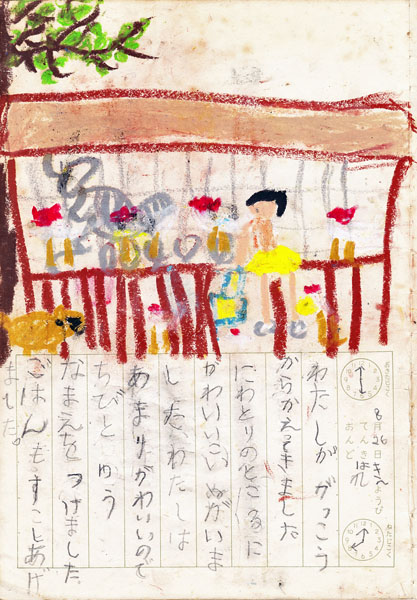 8月26日きんようび
てんき はれ
おんど
わたしが がっこう
からかえてきました
にわとりのところに
かわいいこいぬがいま
した。わたしは
あまりかわいいので
ちびとゆう
なまえを つけました
ごはんもすこしあげ
ました。